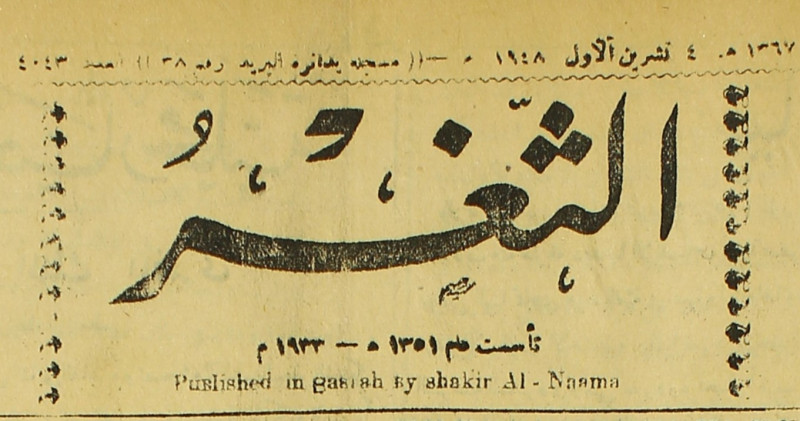 ١٣٦٧ هـ. ٤ تشرين الاول ١٩٤٨ م —(( مسجلة بدائرة البريد رقم ٣٨ )) العدد ٤٠٤٣
الثَّغْرُ
تأسست عام ١٣٥١ ه — ١٩٣٣ م
Published in basrah By shakir Al - Naama